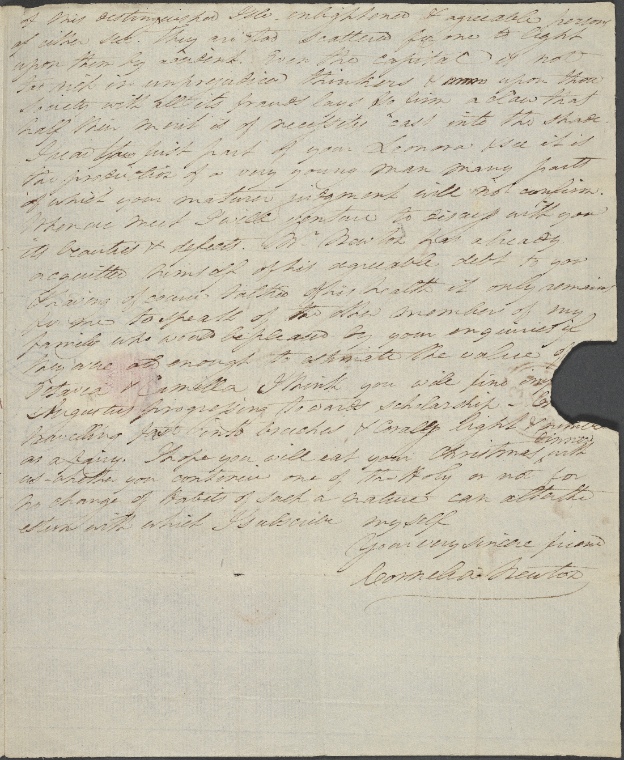 of this distinguished Isle. enlightened & agreeable persons
of either sex. They are too scattered for one to light
upon them by accident. Even the Capital is not
too rich in unprejudiced thinkers & upon those
Society with all its frauds lays so firm a claw that
half their merit is of necessity cast into the shade
I read the first part of your Leonora & see it is
the production of a very young man many parts
of which your maturer judgment will not confirm.
Whenever we meet I will venture to discuss with you
its beauties & defects. Mr Newton has already
acquitted himself of his agreeable debt to you
& of course talked of his health it only remains
for me to speak of the other members of my
family who would be pleased by your enquiries if
they were old enough to estimate the value of
Octavia & Camilla I think you will find
Augustus progressing towards scholarship -
travelling fast into breeches & Coraly light & nimble
as a fairy. I hope you will eat your Christmas dinner with
us - whether you continue one of the Holy or not for
no change of Habits of such a nature can alter the
esteem with which I subscribe myself
Your very sincere friend
Cornelia Newton